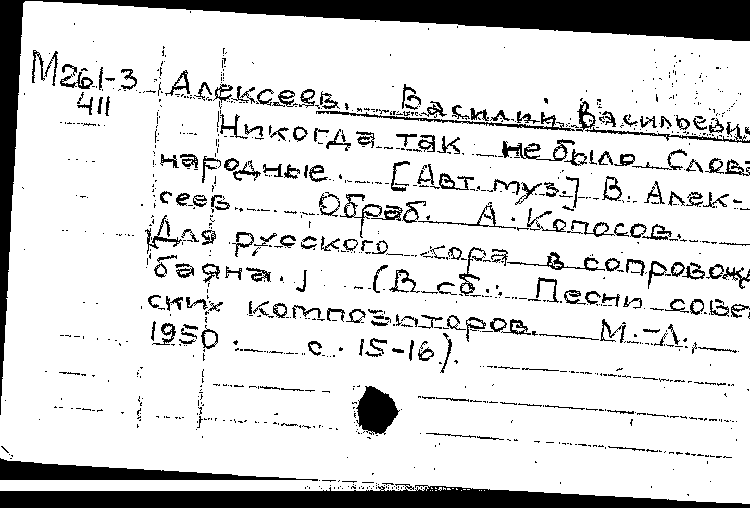 М261-3 Алексеев, Василий Васильевич
411
Никогда так не было. Слова
народные. [Авт. муз.] В. Алек-
сеев. Обраб. А. Копосов.
[Для русского хора в сопровожд
баяна.] (В сб.: Песни совет
ских композиторов. М.-Л.,
1950. с. 15-16).